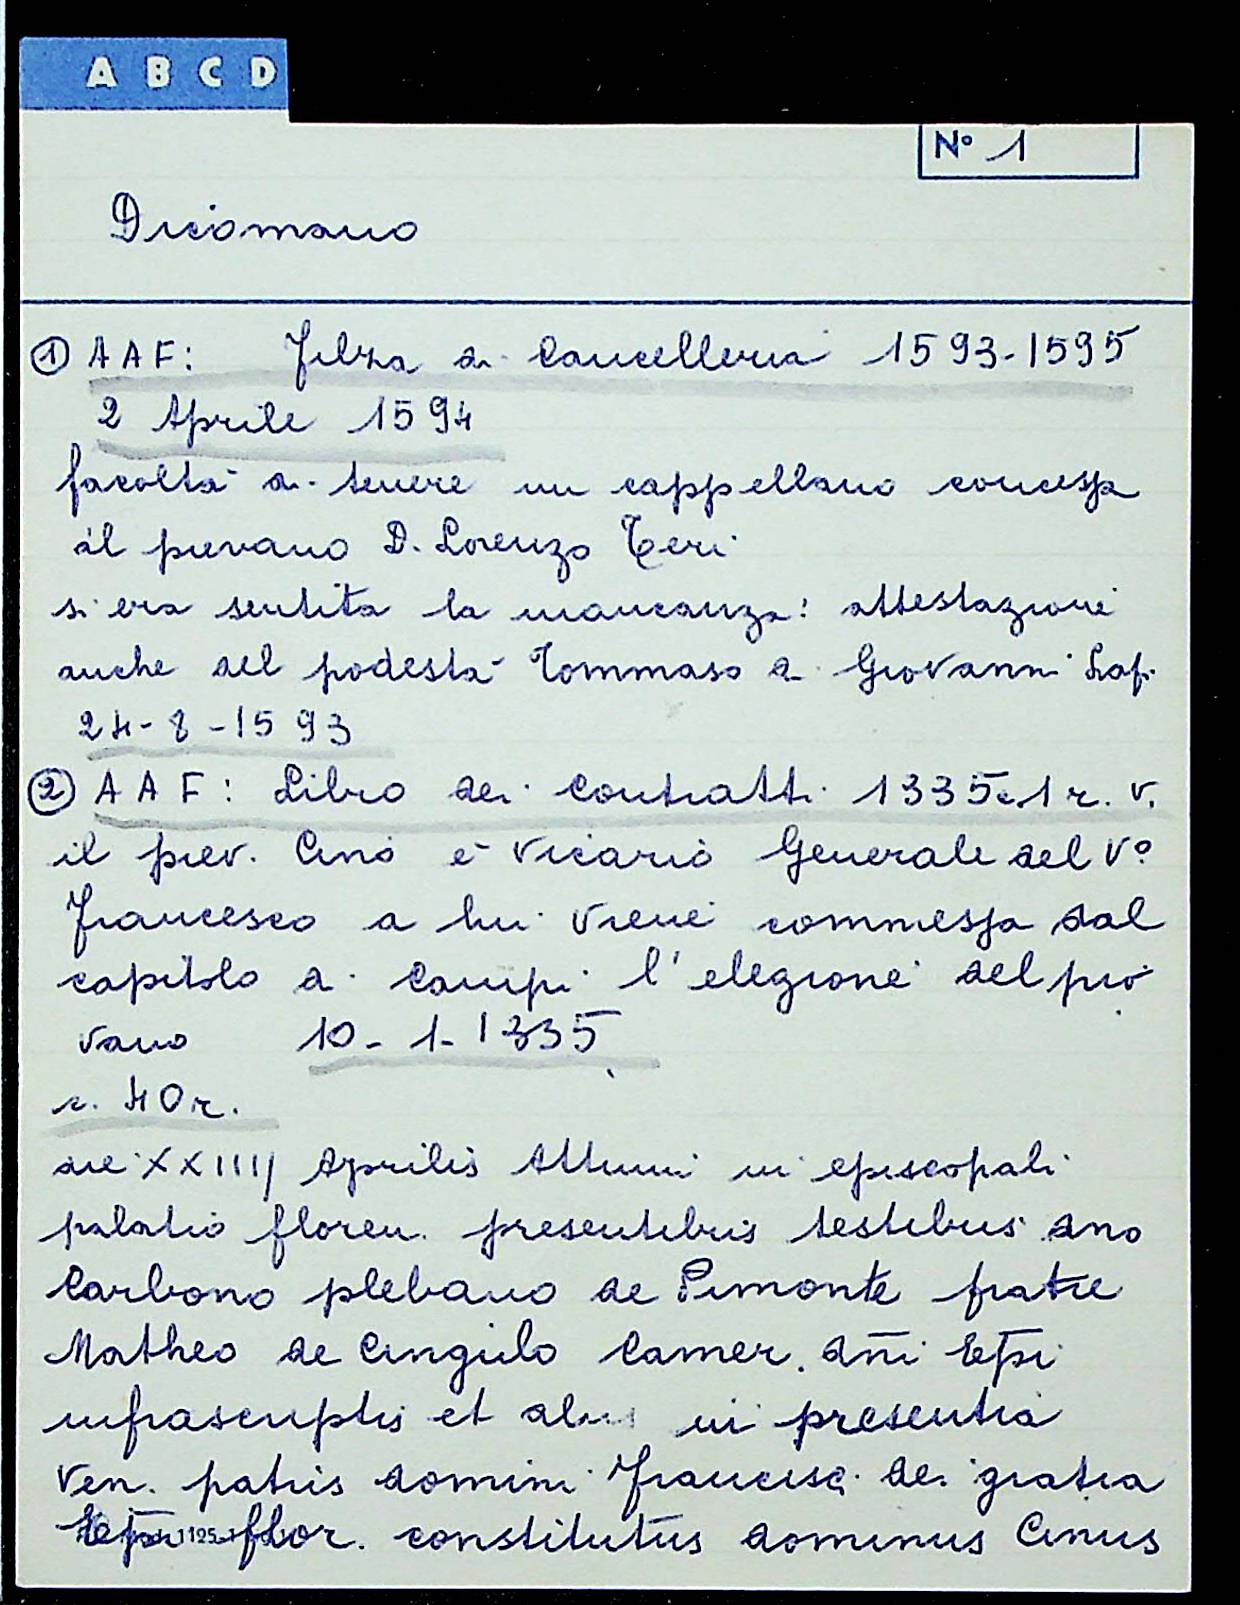 A B C D
Nº 1
Dicomano
① AAF: Filza di Cancelleria 1593-1595
2 Aprile 1594
facoltà di tenere un cappellano concessa
al pievano D. Lorenzo Neri
si era sentita la mancanza: attestazione
anche del podestà Tommaso di Giovanni Lapi
24-8-1593
② AAF: Libro dei contratti 1335 c. 1 r. v.
il piev. Cino è vicario Generale del Vº
Francesco a lui viene commessa dal
capitolo di Campi l'elezione del pio
vano 10-1-1335
c. 40 r.
die XXIIII Aprilis Attum in episcopali
palatio floren. presentibus testibus dno
Carbono plebano de Pimonte fratre
Matheo de Cingulo Camer. dñi Epi
infrascriptis et aliis in presentia
Ven. patris domini Francisci dei gratia
Epi flor. constitutus dominus Cinus